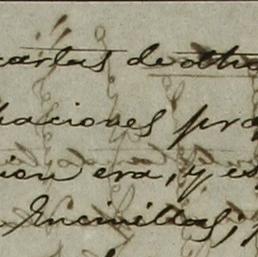 cartas de otra
aciones pro
ion era, y es
Encinillas;